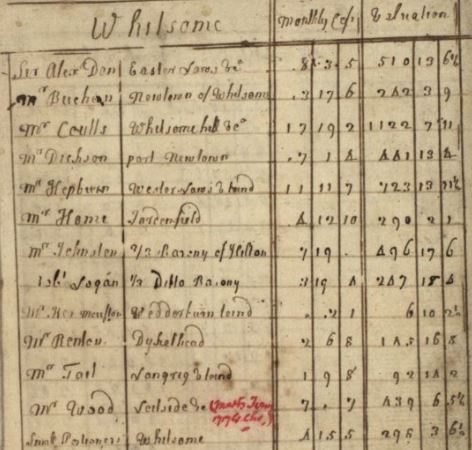 Whilsome Monthly Cess Valuation
Sir Alexr Don Easter Lams &c 8 3 5 510 13 6½
Mr Buchan Newtown of Whilsome 3 17 6 242 3 9
Mr Coulls Whilsome hill &c 17 19 2 1122 7 11
Mr Dickson part Newtown 7 1 4 441 13 4
Mr Hepburn Wester Lams & teind 11 11 7 723 13
Mr Home 4 12 10 290 2 1
Mr Johnston 2/3 Barony of Hilton 7 19 496 17 6
Logan 1/3 Ditto Barony 3 19 4 247 18 4
Wedderburn teind 2 1 6 10 2½
Mr Renton Dykethead 2 6 8 145 16 8
Mr Tait Langrig & teind 1 9 8 92 14 2
Mr Wood Leitside &c 7 7 439 6 5½
Small Portioners Whilsome 4 15 5 298 3 6½